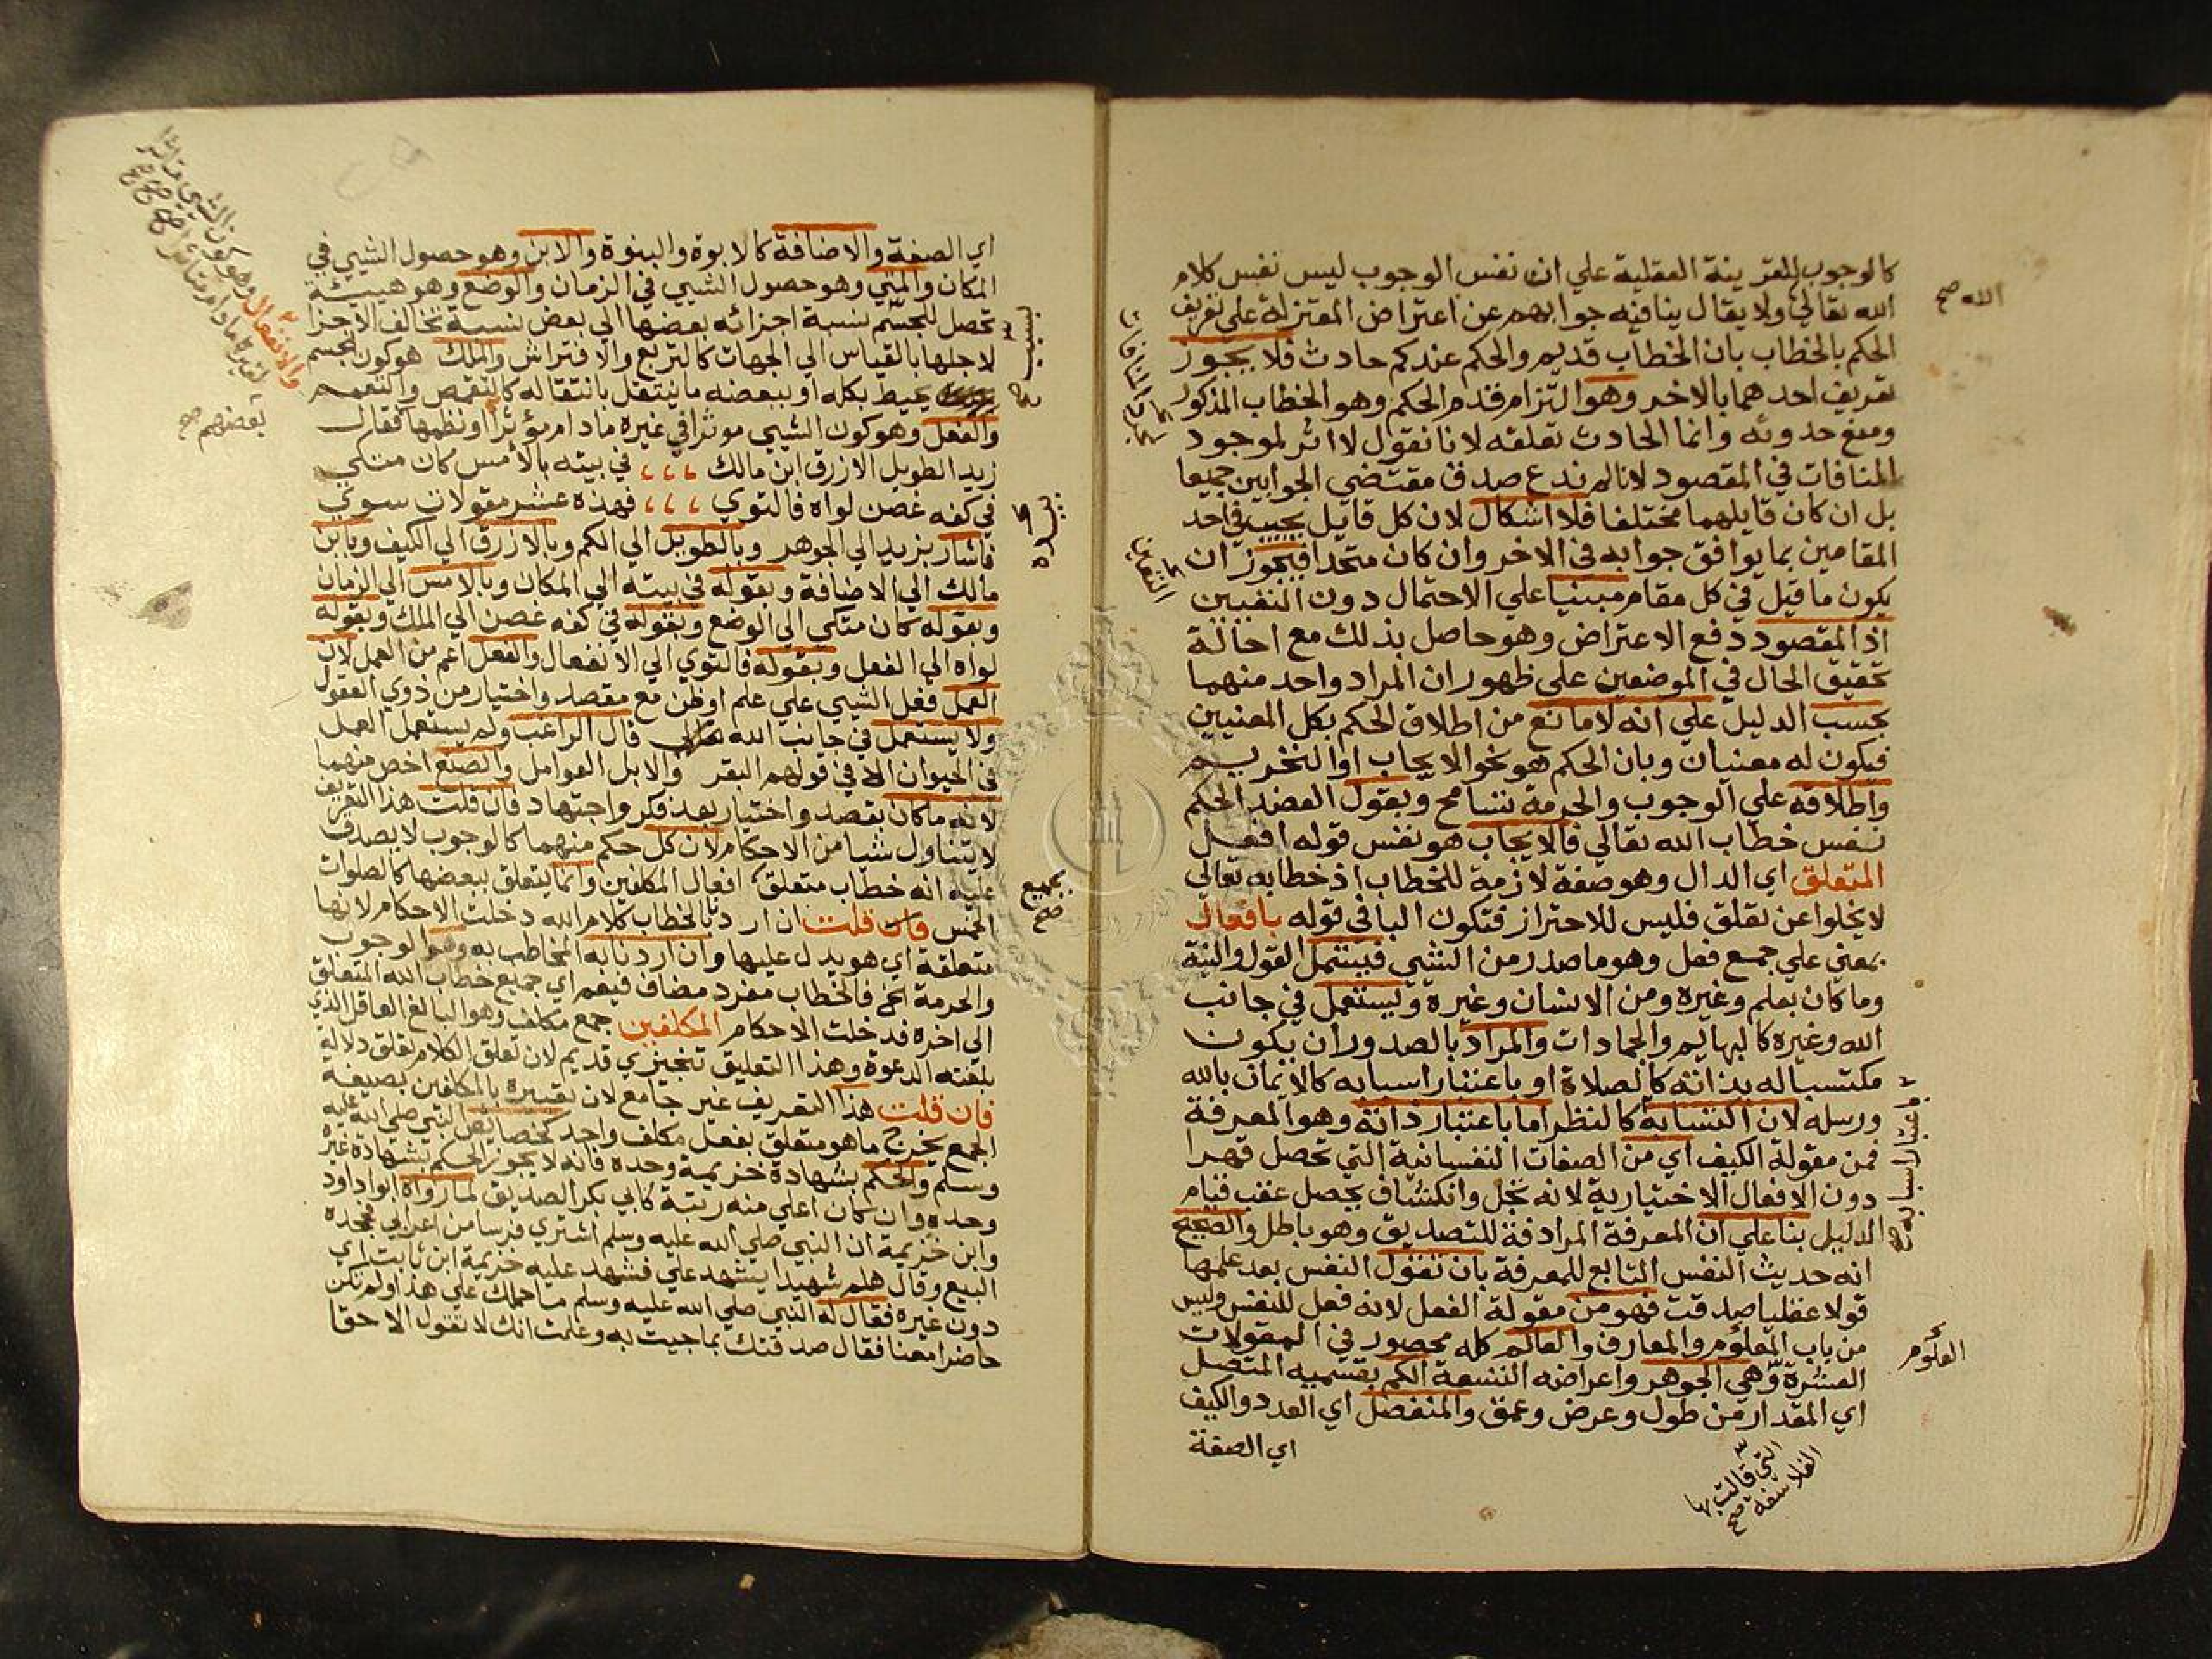 كالوجوب للقرينة العقلية علي ان نفس الوجوب ليس نفس كلام
الله تعالي ولا يقال ينافيه جوابهم عن اعتراض المعتزلة علي تعريف
الحكم بالخطاب بان الخطاب قديم والحكم عندكم حادث فلا يجوز
تعريف احدهما بالاخر وهو التزام قدم الحكم وهو الخطاب المذكور
ومنع حدوثه وانما الحادث تعلقه لانا نقول لا اثر لموجود
المنافات في المقصود لانا لم ندع صدق مقتضي الجوابين جميعا
بل ان كان قايلهما مختلفا فلا اشكال لان كل قايل يجيب في احد
المقامين بما يوافق جوابه في الاخر وان كان متحدا فيجوز ان
يكون ما قيل في كل مقام مبنيا علي الاحتمال دون
اذ المقصود دفع الاعتراض وهو حاصل بذلك مع احالة
تحقيق الحال في الموضعين علي ظهور ان المراد واحد منهما
بحسب الدليل علي انه لا مانع من اطلاق الحكم بكل المعنيين
فيكون له معنيان وبان الحكم هو نحو الايجاب او التحريم
واطلاقه علي الوجوب والحرمة تسامح وبقول العضد الحكم
نفس خطاب الله تعالي فالايجاب هو نفس قوله افعل
المتعلق اي الدال وهو صفة لازمة للخطاب اذ خطابه تعالي
لا يخلوا عن تعلق فليس للاحتراز فتكون البا في قوله بافعال
بمعني علي جمع فعل وهو ما صدر من الشيي فيشمل القول والنية
وما كان بعلم وغيره ومن الانسان وغيره ويستعمل في جانب
الله وغيره كالبهايم والجمادات والمراد بالصدور ان يكون
مكتسبا له بذاته كالصلاة او باعتبار اسبابه كالايمان بالله
ورسله لان اكتسابه كالنظر اما باعتبار ذاته وهو المعرفة
فمن مقولة الكيف اي من الصفات النفسانية التي تحصل قهرا
دون الافعال الاختيارية لانه تجل وانكشاف يحصل عقب قيام
الدليل بنا علي ان المعرفة المرادفة للتصديق وهو باطل والصحيح
انه حديث النفس التابع للمعرفة بان تقول النفس بعد علمها
قولا عقليا صدقت فهو من مقولة الفعل لانه فعل للنفس وليس
من باب العلوم والمعارف والعالم كله محصور في المقولات
العشرة وهي الجوهر واعراضه التسعة الكم بقسميه المتصل
اي المقدار من طول وعرض وعمق والمنفصل اي العدد والكيف
اي الصفة
الله صح
باعتبار اسبابه صح
العلوم
التي قالت بها
الفلاسفة صح
اي الصفة والاضافة كالابوة والبنوة والاين وهو حصول الشيي في
المكان والمتي وهو حصول الشيي في الزمان والوضع وهو هيئة
تحصل للجسم بنسبة اجزائه بعضها الي بعض نسبة تخالف الاجزا
لاجلها بالقياس الي الجهات كالتربع والافتراش والملك هو كون الجسم
يحيط بكله او ببعضه ما ينتقل بانتقاله كالتقمص والتعمم
والفعل وهو كون الشيي موثرا في غيره ما دام مؤثرا ونظمها فقال
زيد الطويل الازرق ابن مالك ،،، في بيته بالأمس كان متكي
في كفه غصن لواه فالتوي ،،، فهذه عشر مقولات سوي
فاشار بزيد الي الجوهر وبالطويل الي الكم وبالازرق الي الكيف وبابن
مالك الي الاضافة وبقوله في بيته الي المكان وبالامس الي الزمان
وبقوله كان متكي الي الوضع وبقوله في كفه غصن الي الملك وبقوله
لواه الي الفعل وبقوله فالتوي الي الانفعال والفعل اعم من العمل لان
العمل فعل الشيي علي علم او ظن مع مقصد واختيار من ذوي العقول
ولا يستعمل في جانب الله قال الراغب ولم يستعمل العمل
في الحيوان الا في قولهم البقر والابل العوامل والصنع اخص منهما
لانه ما كان بقصد واختيار بعد فكر واجتهاد فان قلت هذا التعريف
لا يتناول شيا من الاحكام لان كل حكم منهما كالوجوب لا يصدق
عليه انه خطاب متعلق افعال المكلفين وانما يتعلق ببعضها كالصلوات
الخمس فان قلت ان اردنا بالخطاب كلام الله دخلت الاحكام لانها
متعلقة اي هو يدل عليها وان اردنا به المخاطب به وهو الوجوب
والحرمة الخ فالخطاب مفرد مضاف فيعم اي جميع خطاب الله المتعلق
الي اخره فدخلت الاحكام المكلفين جمع مكلف وهو البالغ العاقل الذي
بلغته الدعوة وهذا التعليق تنجيزي قديم لان تعلق الكلام تعلق دلالة
فان قلت هذا التعريف غير جامع لان تعبيره بالمكلفين بصيغة
الجمع يخرج ما هو متعلق بفعل مكلف واحد كخصايص النبي صلي الله عليه
وسلم والحكم بشهادة خزيمة وحده فانه لا يجوز الحكم بشهادة غيره
وحده وان كان اعلي منه رتبة كابي بكر الصديق لما رواه ابوا داود
وابن خزيمة ان النبي صلي الله عليه وسلم اشتري فرسا من اعرابي فجحده
البيع وقال هلم شهيدا يشهد علي فشهد عليه خزيمة ابن ثابت اي
دون غيره فقال له النبي صلي الله عليه وسلم ما حملك علي هذا ولم تكن
حاضرا معنا فقال صدقتك بما جيت به وعلمت انك لا تقول الا حقا
والانفعال وهو كون الشيي متاثرا
بعضهم صح
بسبب
بجميع
صح